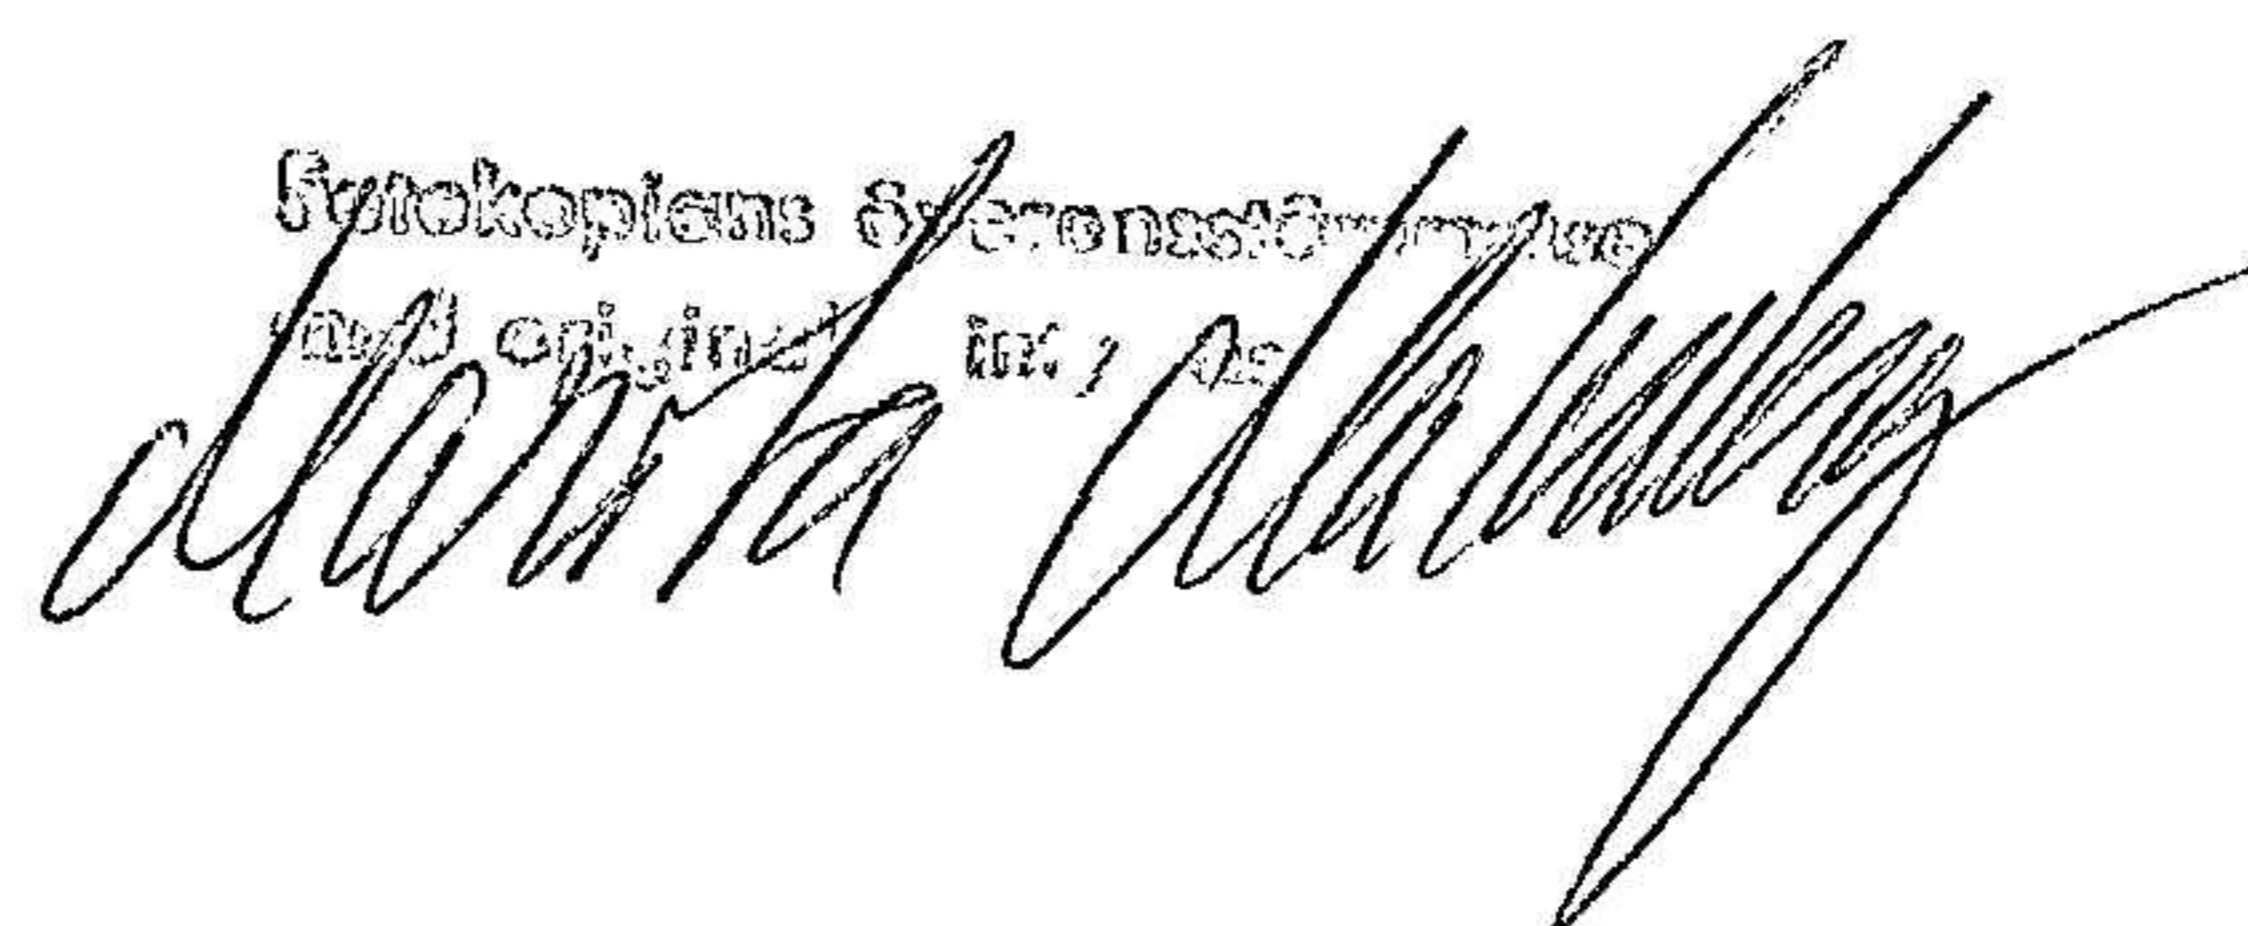 Fotokopiens överensstämmelse
med original intygas
Marita